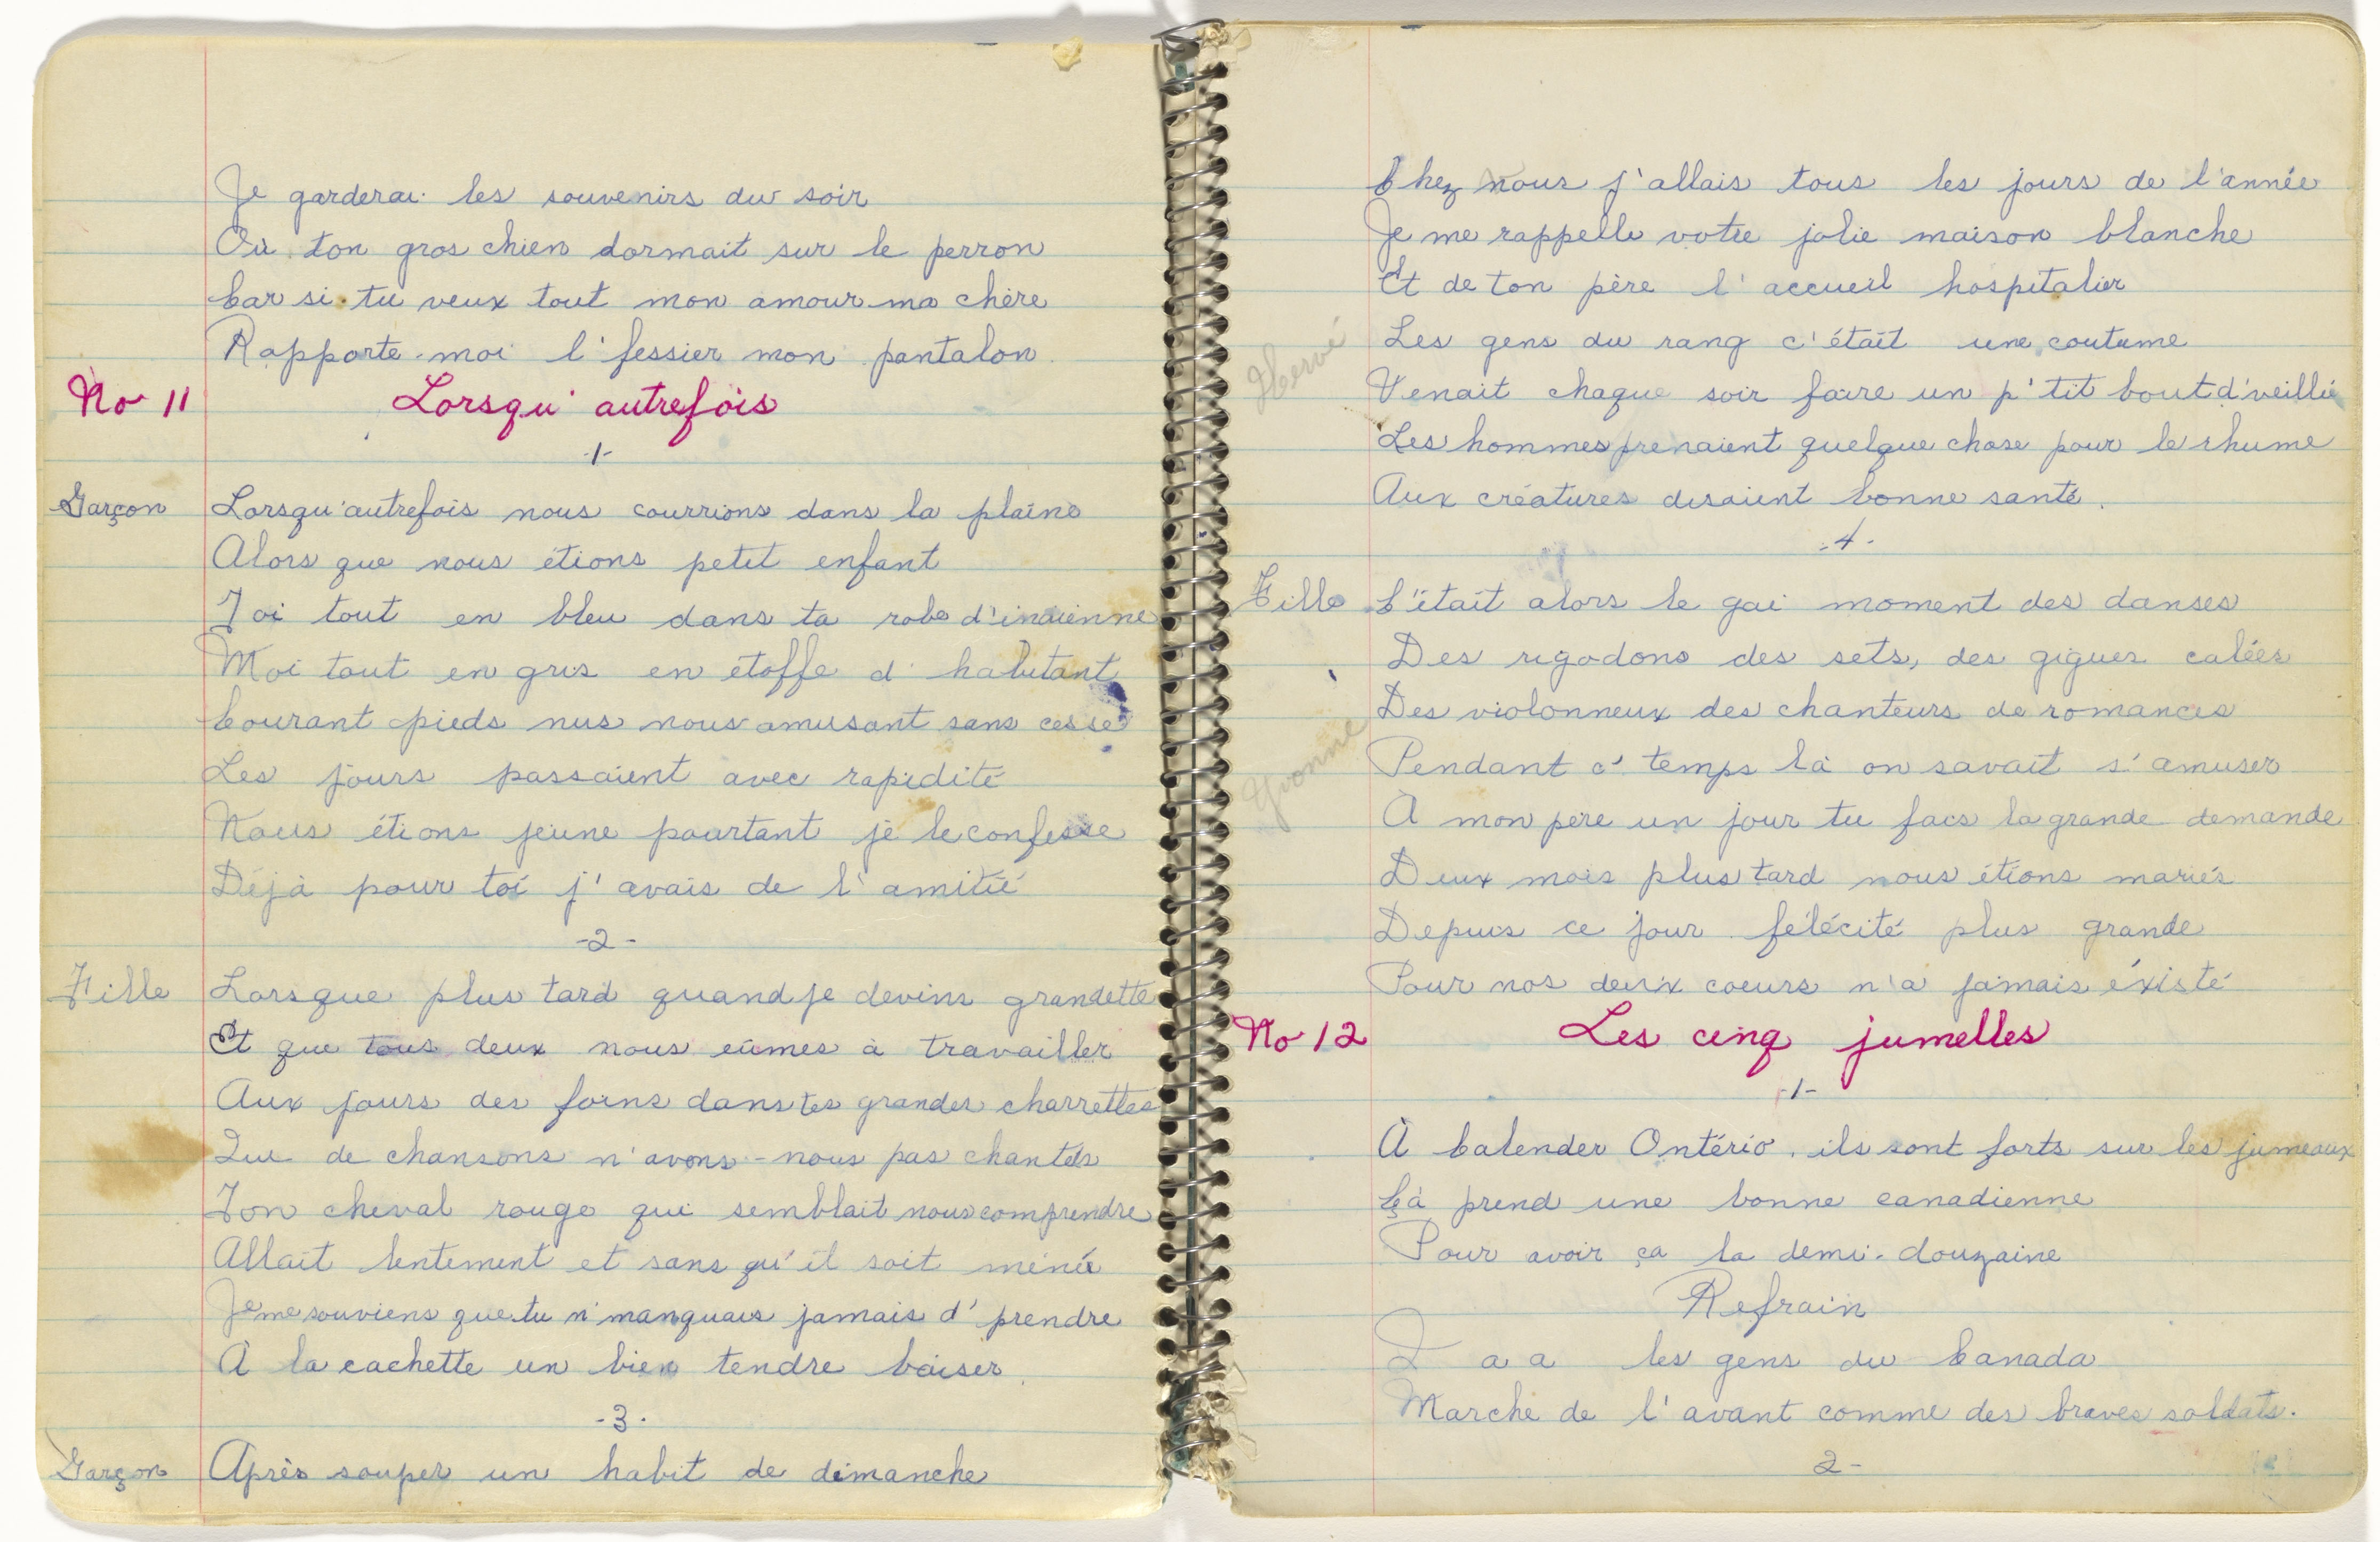 Je garderai les souvenirs du soir
Où ton gros chien dormait sur le perron
Car si tu veux tout mon amour ma chère
Rapporte-moi l'fessier mon pantalon
No 11 Lorsqu'autrefois
-1-
Garçon Lorsqu'autrefois nous courrions dans la plaine
Alors que nous étions petit enfant
Toi tout en bleu dans ta robe d'indienne
Moi tout en gris en étoffe d'habitant
Courant pieds nus nous amusant sans cesse
Les jours passaient avec rapidité
Nous étions jeune pourtant je le confesse
Déjà pour toi j'avais de l'amitié
-2-
Fille Lorsque plus tard quand je devins grandette
Et que tous deux nous eûmes à travailler
Aux jours des foins dans tes grandes charrettes
Que de chansons n'avons-nous pas chantés
Ton cheval rouge qui semblait nous comprendre
Allait lentement et sans qu'il soit mené
Je me souviens que tu n'manquais jamais d'prendre
À la cachette un bien tendre baiser
-3-
Garçon Après souper un habit de dimanche
Chez nous j'allais tous les jours de l'année
Je me rappelle votre jolie maison blanche
Et de ton père l'accueil hospitalier
Hervé Les gens du rang c'était une coutume
Venait chaque soir faire un p'tit bout d'veillée
Les hommes prenaient quelque chose pour le rhume
Aux créatures disaient bonne santé.
-4-
Fille C'était alors le gai moment des danses
Des rigodons des sets, des gigues calées
Des violonneux des chanteurs de romances
Yvonne Pendant c'temps là on savait s'amuser
À mon père un jour tu fais la grande demande
Deux mois plus tard nous étions mariés
Depuis ce jour félécité plus grande
Pour nos deux coeurs n'a jamais éxisté
No 12 Les cinq jumelles
-1-
À Calender Ontério. ils sont forts sur les jumeaux
Çà prend une bonne canadienne
Pour avoir ça la demi-douzaine
Refrain
a a les gens du Canada
Marche de l'avant comme des braves soldats.
2-